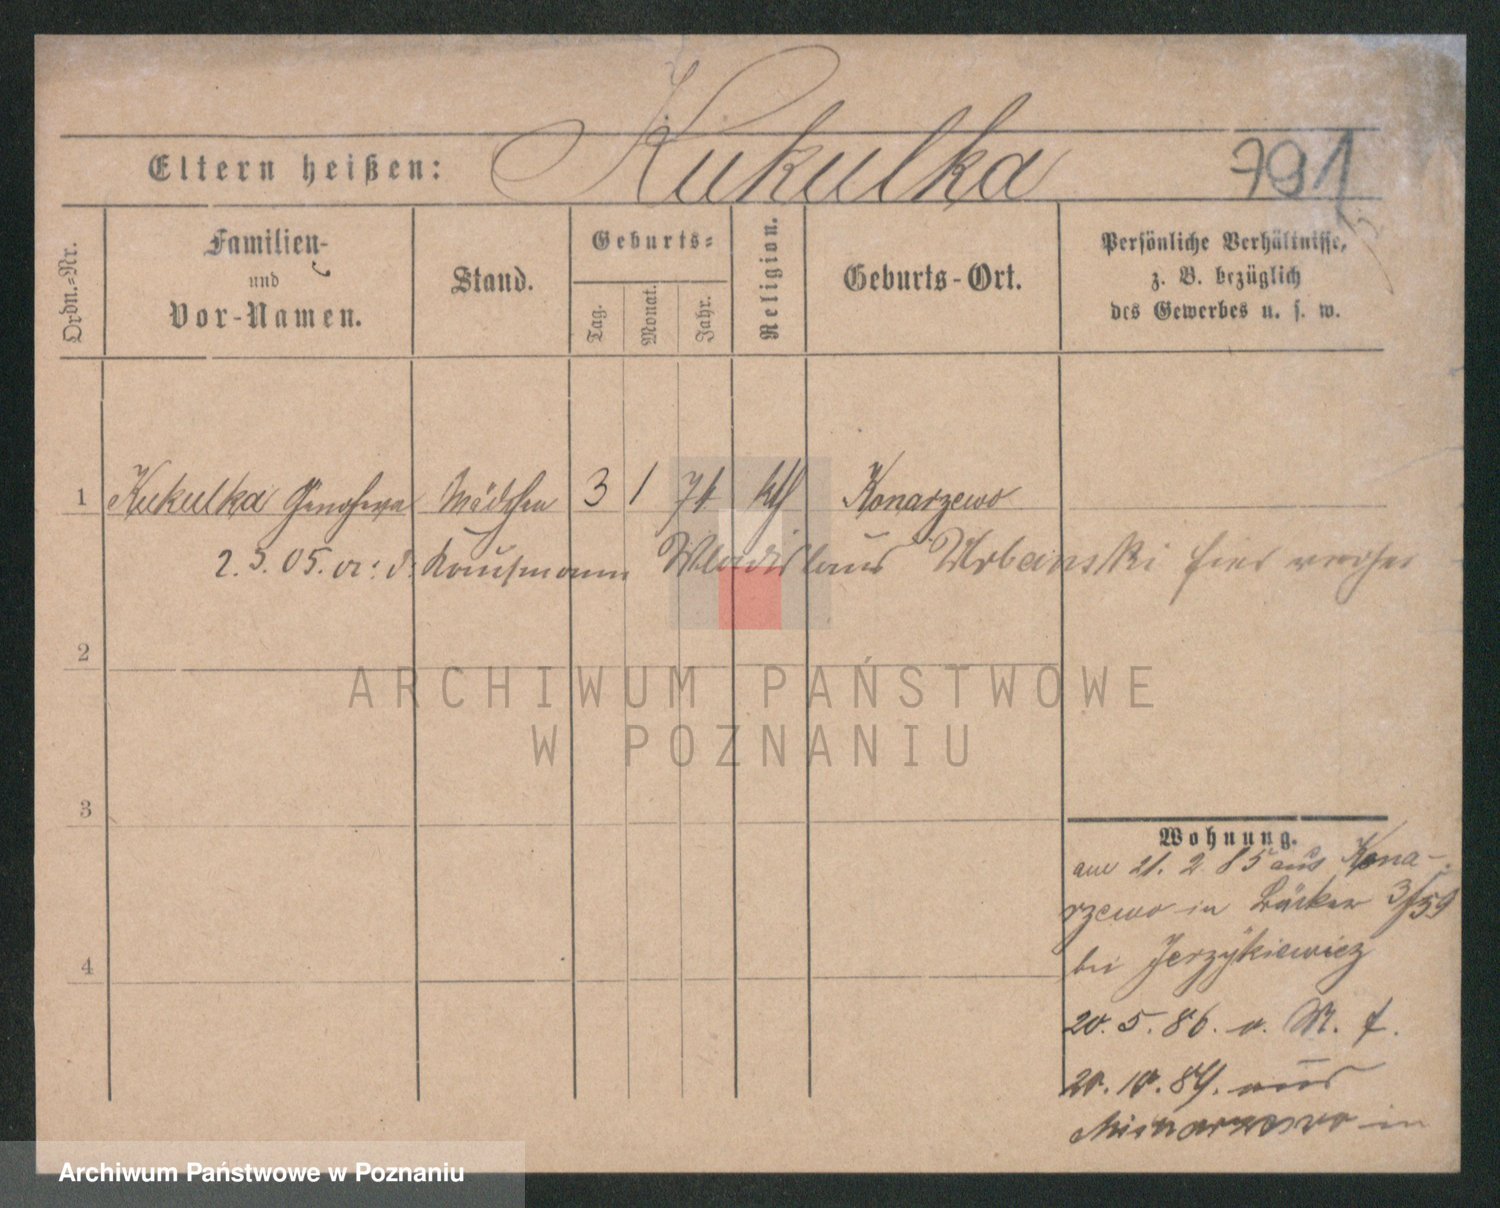 Kukulka
Eltern heißen:
791
Ordn.=Nr.
Familien-
und
Vor-Namen.
Stand.
Geburts=
Tag.
Monat.
Jahr.
Religion.
Geburts-Ort.
Persönliche Verhältnisse,
z. B. bezüglich
des Gewerbes u. s. w.
1 Kukulka Genofeva Mädchen 3 1 71 kth Konarzewo
2. 5. 05. a: d: Kaufmann Wladislaus Urbanski hier verhei
2
ARCHIWUM PAŃSTWOWE
W POZNANIU
3
4
Wohnung.
am 21. 2 85 aus Kona-
rzewo in Bäcker 3/59
bei Jerzykiewicz
20. 5. 86. n.
20. 10. 89. aus
in
Archiwum Państwowe w Poznaniu